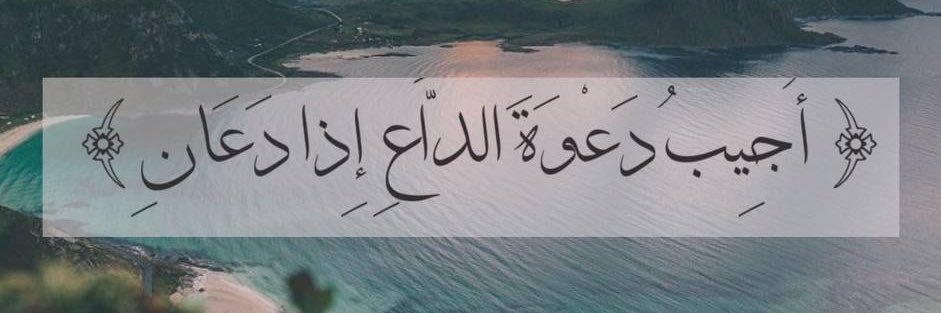 ﴿ أَجِيبُ دَعْوَةَ الدَّاعِ إِذا دَعَانِ ﴾